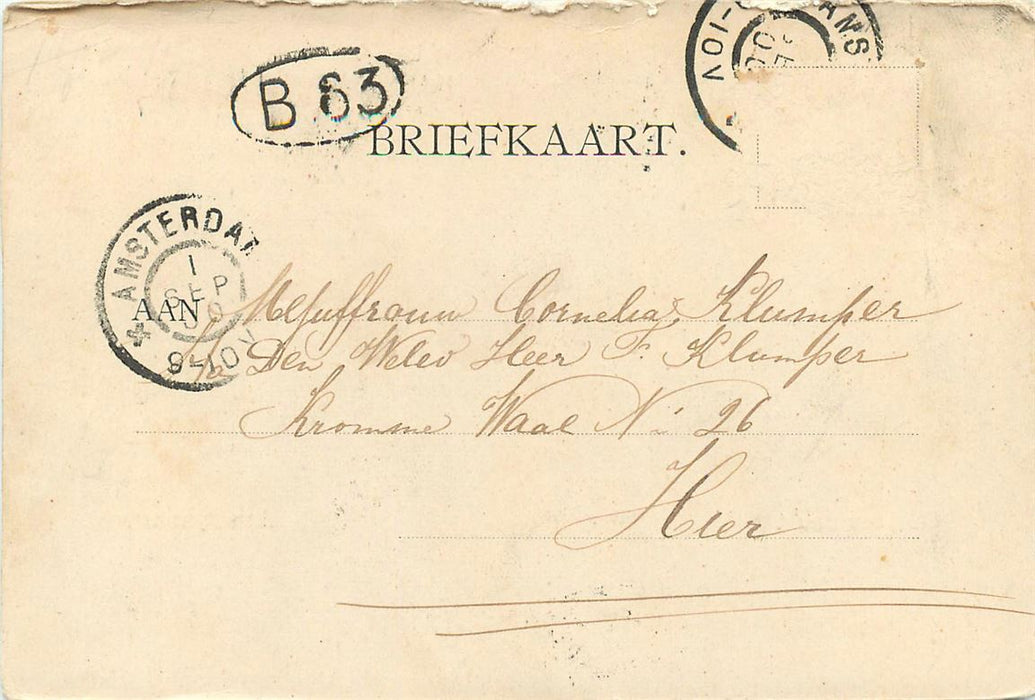 B 63
BRIEFKAART.
AMSTERDA
1
SEP
00
9-10V
AAN Mejuffrouw Cornelia Klumper
p/a Den Weled Heer F. Klumper
Kromme Waal No 26
Hier